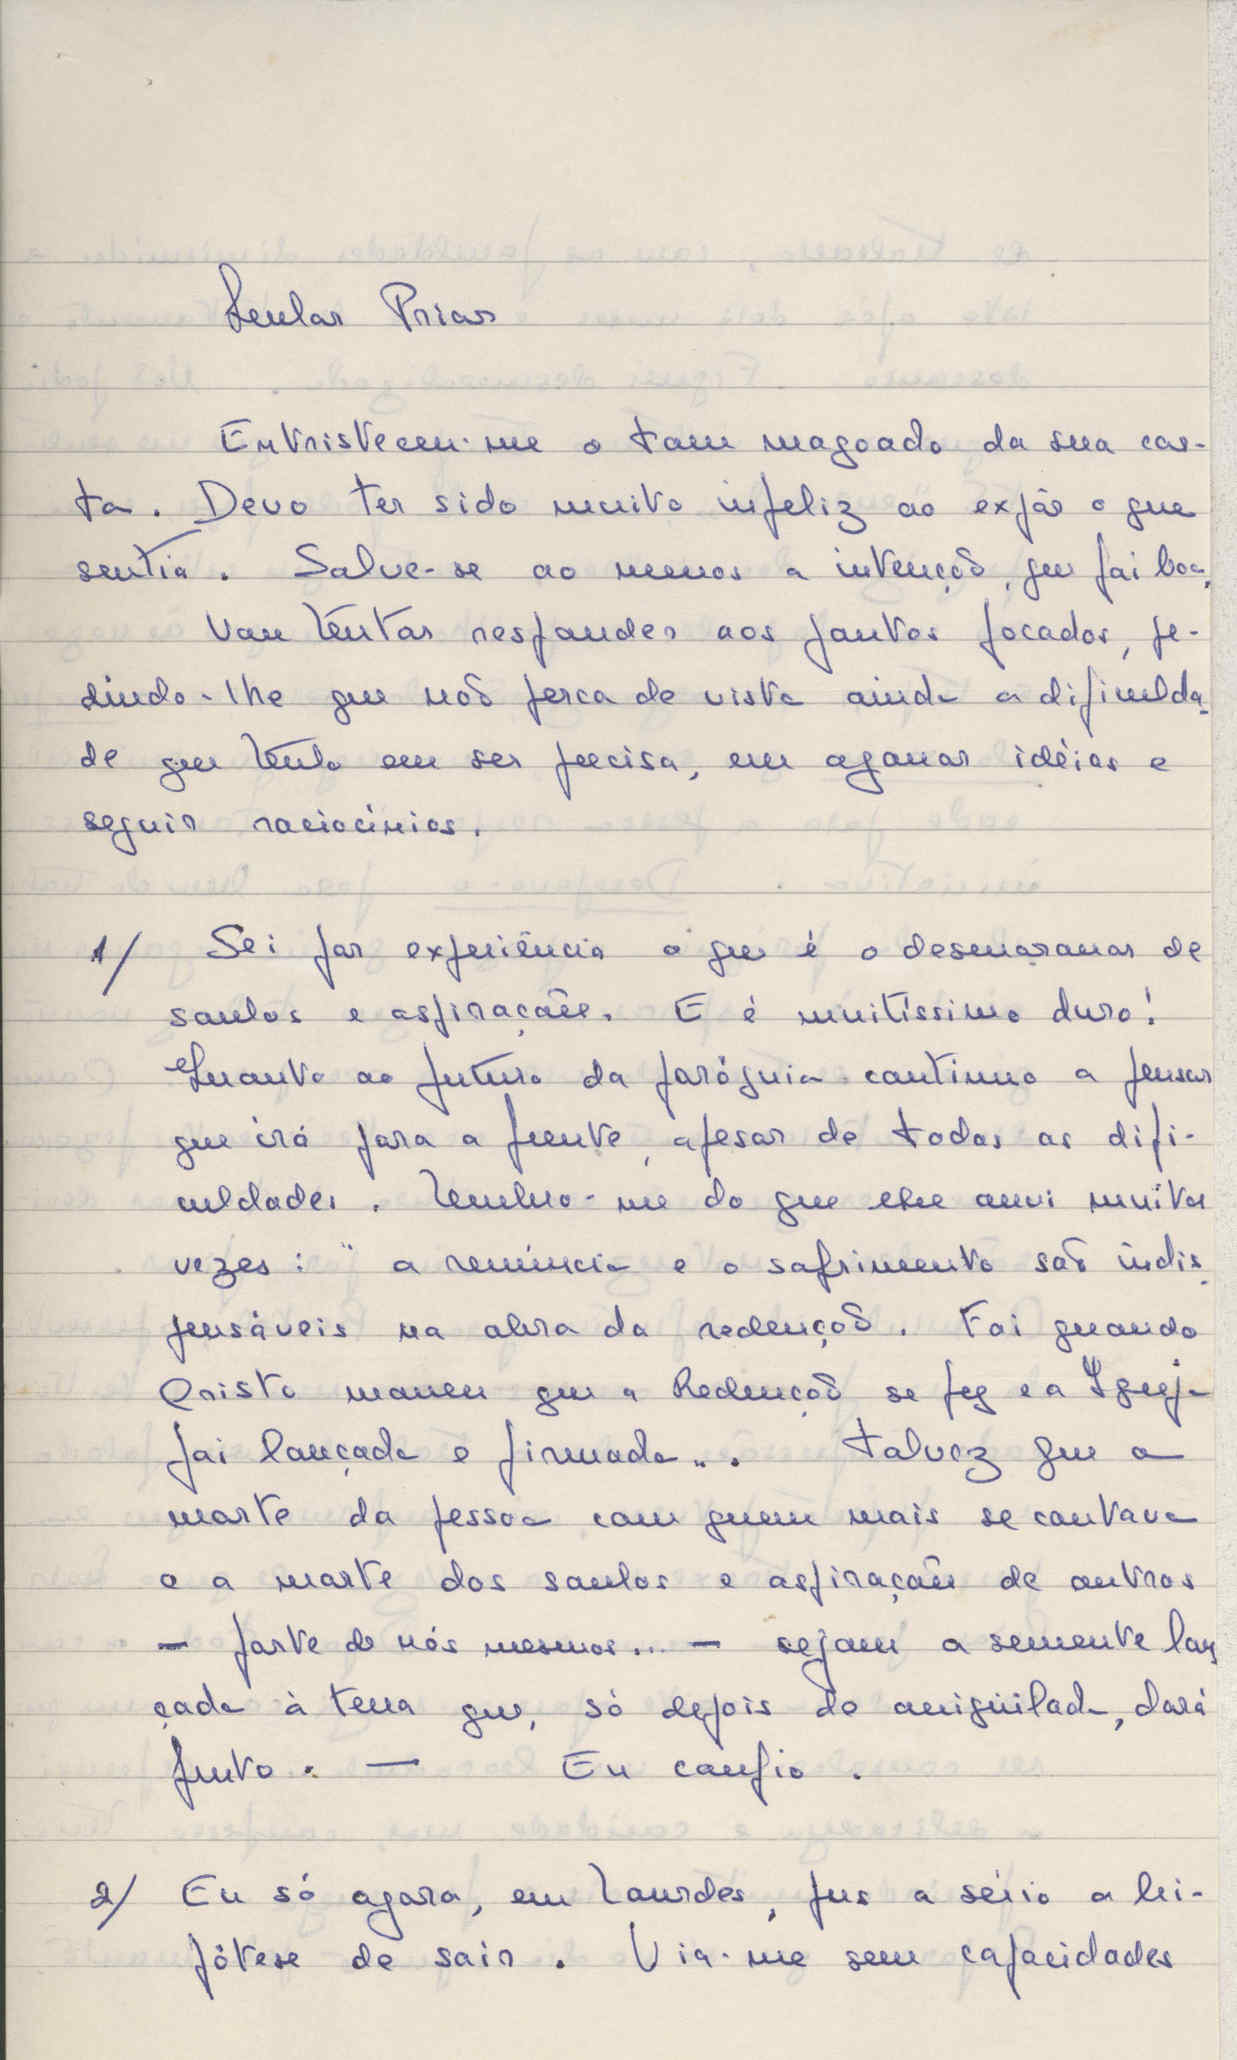 Senhor Prior
Entristeceu-me o tom magoado da sua car-
ta. Devo ter sido muito infeliz ao expôr o que
sentia. Salve-se ao menos a intenção, que foi boa.
Vou tentar responder aos pontos focados, pe-
dindo-lhe que não perca de vista ainda a dificulda-
de que tenho em ser precisa, em agarrar idéias e
seguir raciocínios.
1/ Sei por experiência o que é o desmoronar de
sonhos e aspirações. E é muitíssimo duro!
Quanto ao futuro da paróquia continuo a pensar
que irá para a frente, apesar de todas as difi-
culdades. Lembro-me do que lhe ouvi muitas
vezes: "a renúncia e o sofrimento são indis-
pensáveis na obra da redenção. Foi quando
Cristo morreu que a Redenção se fez e a Igreja
foi lançada e firmada". Talvez que a
morte da pessoa com quem mais se contava
e a morte dos sonhos e aspirações de outros
— parte de nós mesmos... — sejam a semente lan-
çada à terra que, só depois de aniquilada, dará
fruto. — Eu confio.
2/ Eu só agora, em Lourdes, pus a sério a hi-
pótese de sair. Via-me sem capacidades